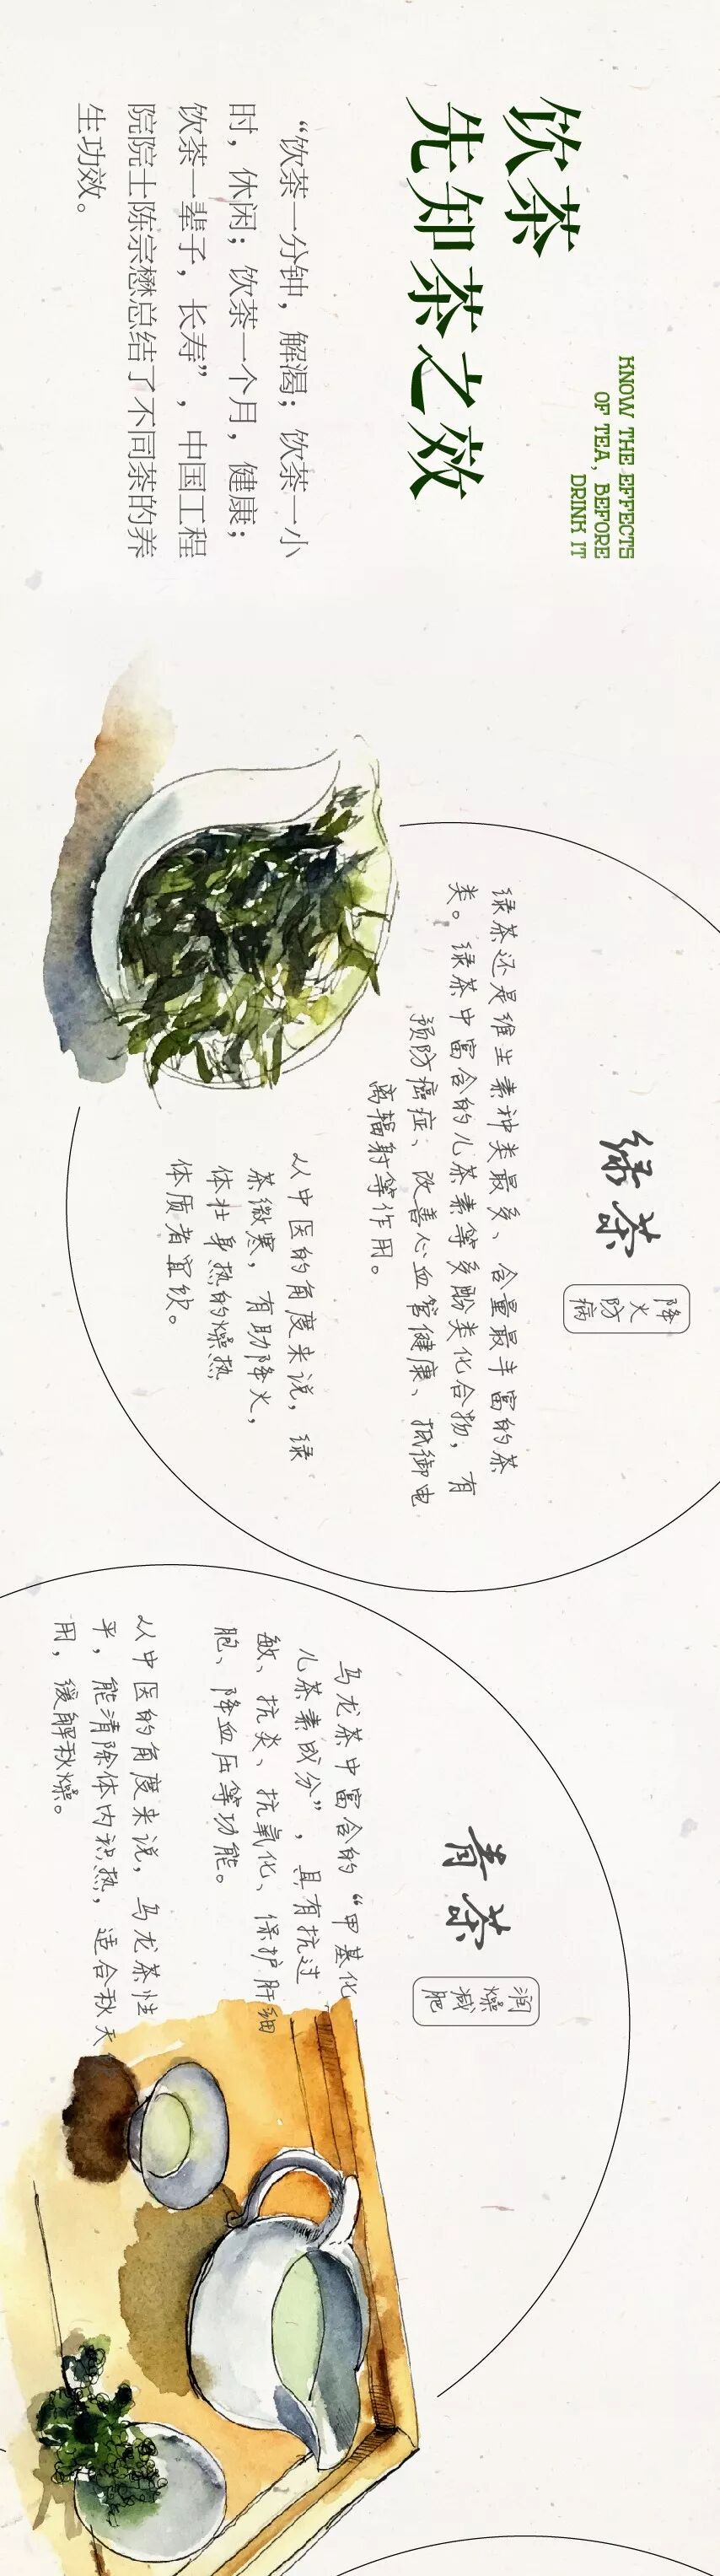 KNOW THE EFFECTS
OF TEA, BEFORE
DRINK IT
饮茶
先知茶之效
“饮茶一分钟，解渴；饮茶一小
时，休闲；饮茶一个月，健康；
饮茶一辈子，长寿”，中国工程
院院士陈宗懋总结了不同茶的养
生功效。
绿茶
降火防病
绿茶还是维生素种类最多、含量最丰富的茶
类。绿茶中富含的儿茶素等多酚类化合物，有
预防癌症、改善心血管健康、抵御电
离辐射等作用。
从中医的角度来说，绿
茶微寒，有助降火，
体壮身热的燥热
体质者宜饮。
青茶
润燥减肥
乌龙茶中富含的“甲基化
儿茶素成分”，具有抗过
敏、抗炎、抗氧化、保护肝细
胞、降血压等功能。
从中医的角度来说，乌龙茶性
平，能清除体内积热，适合秋天
用，缓解秋燥。